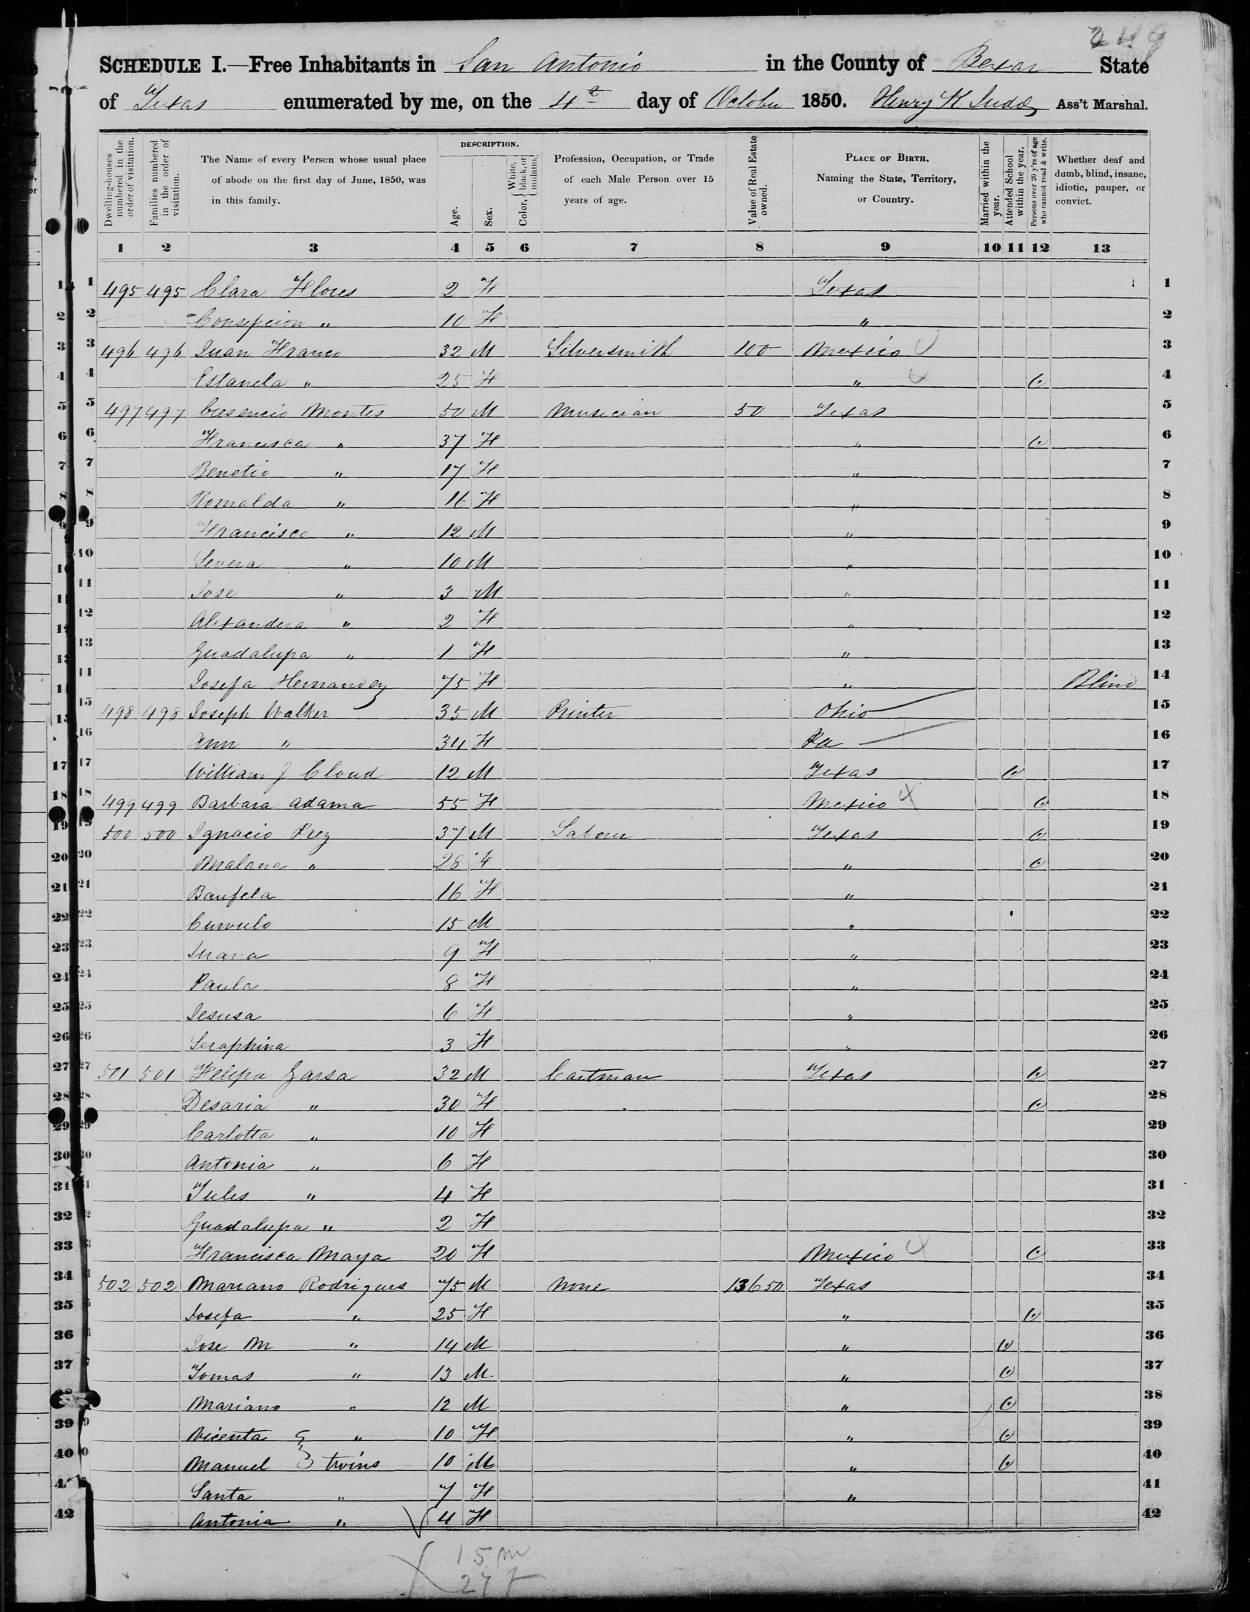 249
SCHEDULE I.—Free Inhabitants in San Antonio in the County of Bexar State
of Texas enumerated by me, on the 4th day of October 1850. Henry K Judd Ass't Marshal.
Dwelling-houses numbered in the order of visitation.
Families numbered in the order of visitation.
The Name of every Person whose usual place of abode on the first day of June, 1850, was in this family.
DESCRIPTION.
Age.
Sex.
Color, { White, black, or mulatto.
Profession, Occupation, or Trade of each Male Person over 15 years of age.
Value of Real Estate owned.
PLACE OF BIRTH. Naming the State, Territory, or Country.
Married within the year.
Attended School within the year.
Persons over 20 y'rs of age who cannot read & write.
Whether deaf and dumb, blind, insane, idiotic, pauper, or convict.
1 2 3 4 5 6 7 8 9 10 11 12 13
1 495 495 Clara Flores 2 F Texas 1
2 Consepcion " 10 F " 2
3 496 496 Juan Franco 32 M Silversmith 100 Mexico 3
4 Estanela " 25 F " 4
5 497 497 Cresencio Montes 50 M Musician 50 Texas 5
6 Francisca " 37 F " 6
7 Benetio " 17 F " 7
8 Romalda " 16 F " 8
9 Francisco " 12 M " 9
10 Severa " 10 M " 10
11 Jose " 3 M " 11
12 Alexandera " 2 F " 12
13 Guadalupa " 1 F " 13
14 Josefa Hernandez 75 F " Blind 14
15 498 498 Joseph Walker 35 M Printer Ohio 15
16 Ann " 34 F Pa 16
17 William J Cloud 12 M Texas 17
18 499 499 Barbara Adama 55 F Mexico 18
19 500 500 Ignacio Prez 37 M Labour Texas 19
20 Malana " 28 F " 20
21 Baufela 16 F " 21
22 15 M " 22
23 Juana 9 F " 23
24 Paula 8 F " 24
25 Jesusa 6 F " 25
26 Seraphina 3 F " 26
27 501 501 Felipa Garsa 32 M Cartman Texas 27
28 Desaria " 30 F 28
29 Carlotta " 10 F 29
30 Antonia " 6 F 30
31 Jules " 4 F 31
32 Guadalupa " 2 F 32
33 Francisca Maya 20 F Mexico 33
34 502 502 Mariano Rodrigues 75 M None 13650 Texas 34
35 Josefa " 25 F " 35
36 Jose M " 14 M " 36
37 Tomas " 13 M " 37
38 Mariano " 12 M " 38
39 Vicenta " 10 F " 39
40 Manuel } twins 10 M " 40
41 Santa " 7 F " 41
42 Antonia " 4 F 42
15 m
27 f